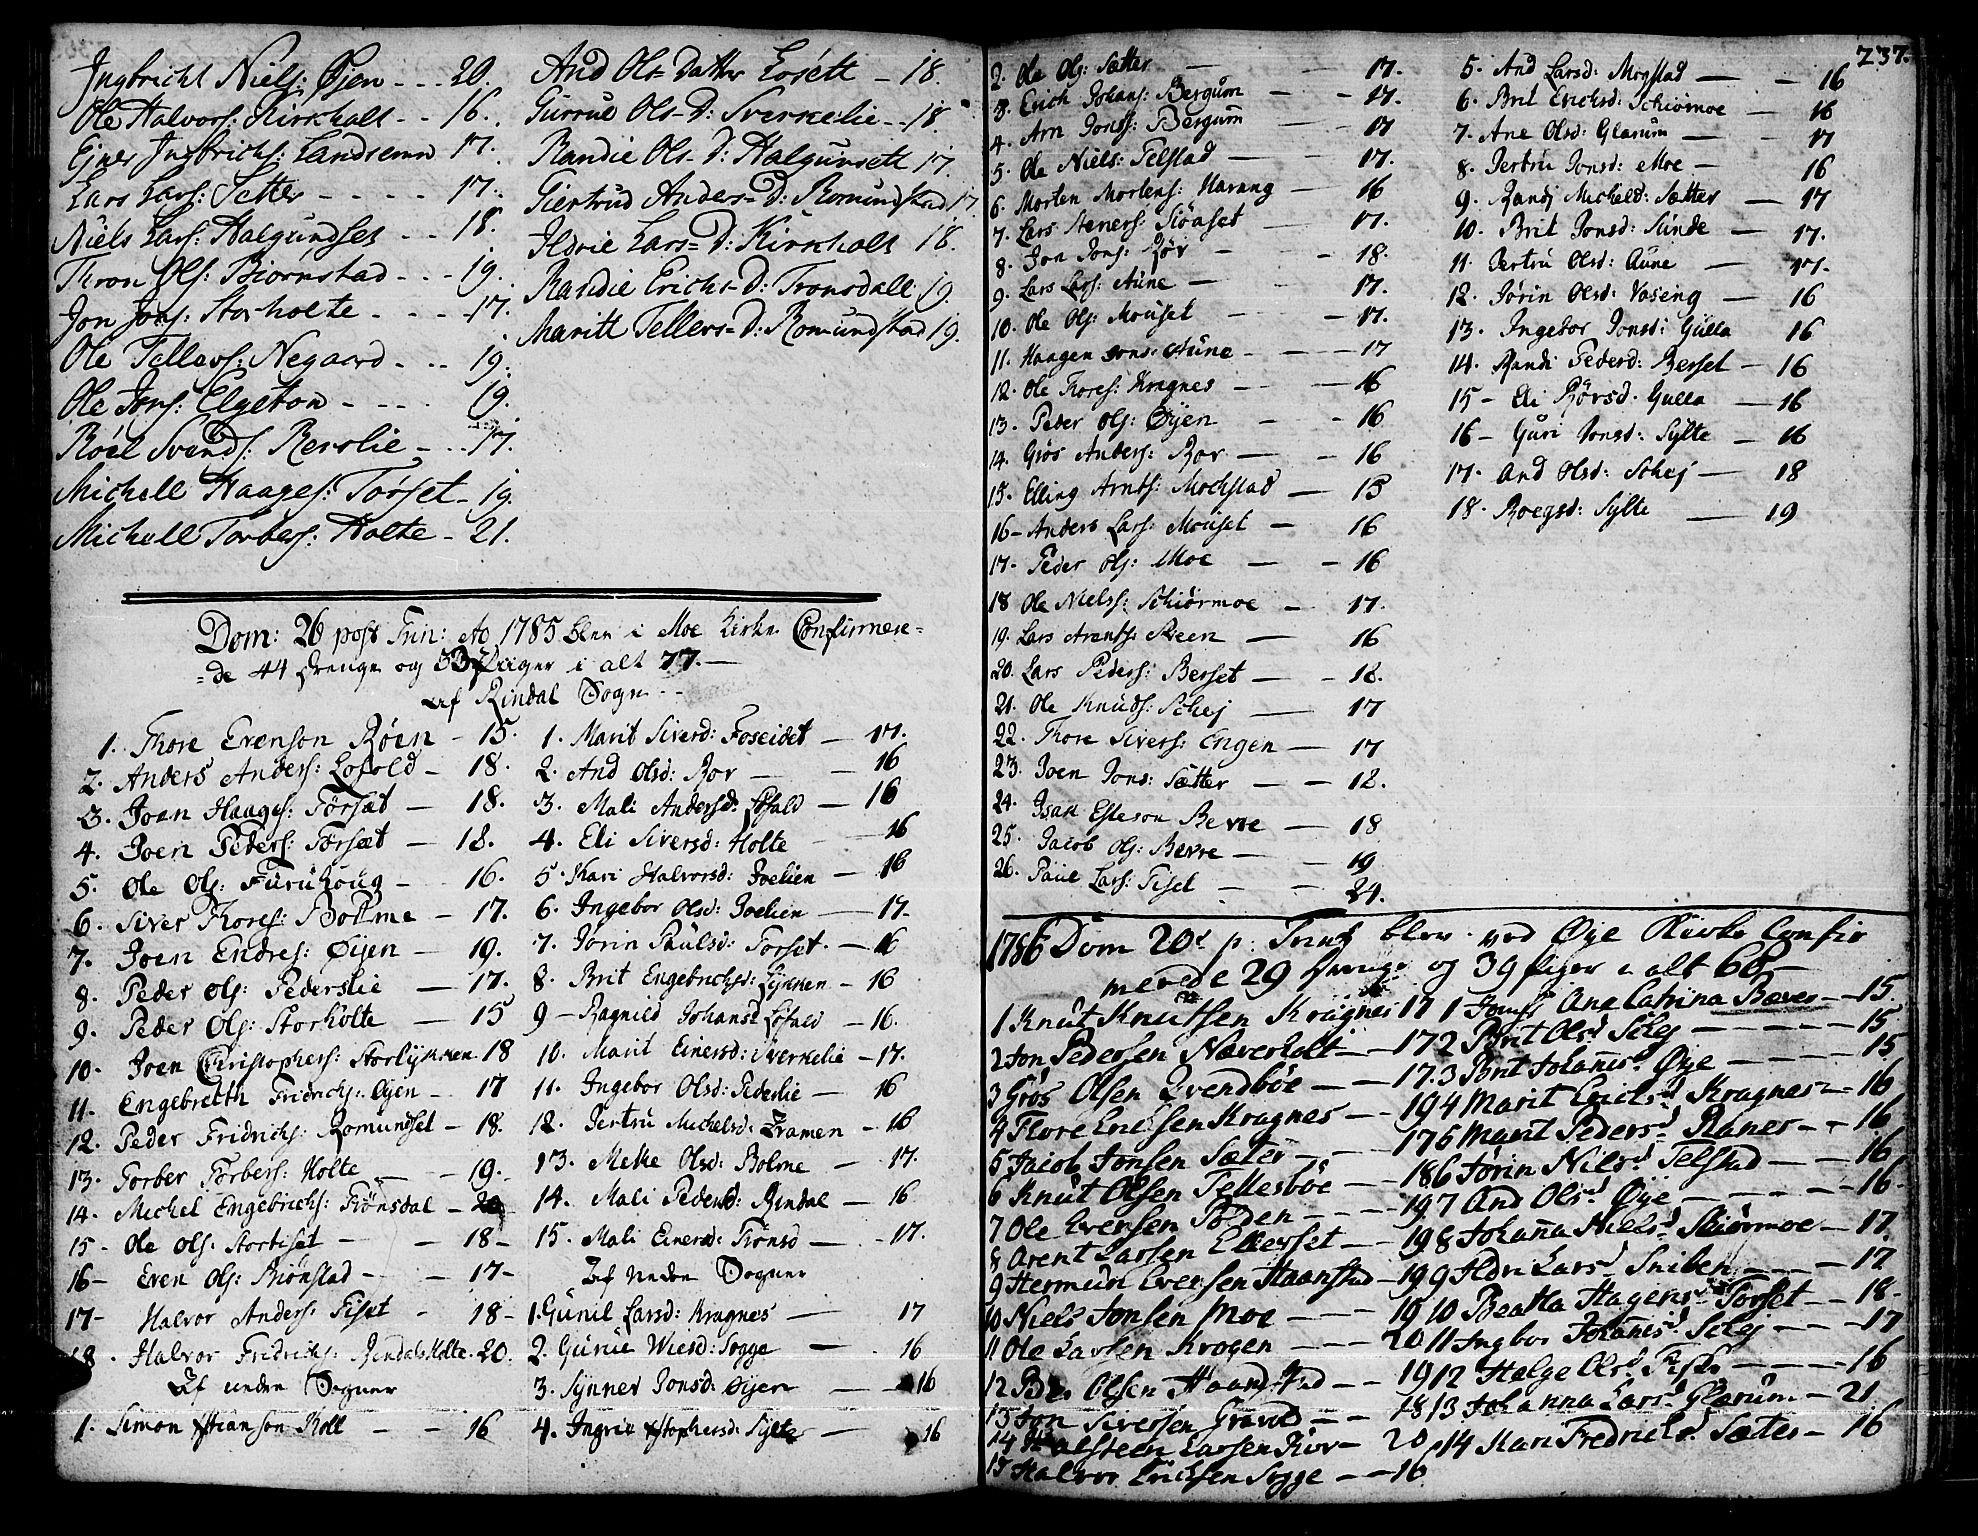 Ingbricht Niels: Øjen - - - 20.
Ole Halvors: Kirkholt - - 16.
Ejner Ingbrichs: Landsemn 17.
Lars Lars: Setter - - - - 17.
Niels Lars: Halgundset - - 18.
Thron Ols: Biørnstad - - - 19.
Jon Jons: Storholte - - - 17.
Ole Tellers: Negaard - - - 19.
Ole Jons: Elgeton - - - - 19.
Roel Svends: Rerslie - - - 17.
Michell Haages: Torset - 19.
Michell Torbers: Holte - 21.
And Ols-Datter Losett - 18.
Gurrue Ols-D: Sverkelie - - 18.
Randie Ols-D: Halgunsett 17.
Giertrud Anders-D: Romundstad 17.
Ildrie Lars-D: Kirkholt 18.
Randie Erichs-D: Tronsdall 19.
Maritt Tellers-D: Romundstad 19.
Dom: 26 post Trin: Ao 1785 blev i Moe Kirke Confirmere=
=de 44 Drenge og 33 Piiger i alt 77.
Af Rindal Sogn - -
1. Thore Evenson Røen - 15.
2. Anders Anders: Lofold - 18.
3. Joen Haages: Torsæt - 18.
4. Joen Peders: Torsæt - 18.
5. Ole Ols: Furuhoug - 16.
6. Siver Thores: Bollme - 17.
7. Joen Endres: Øijen - 19.
8. Peder Ols: Pederslie - 17.
9. Peder Ols: Storholte - 15
10. Joen Christophers: Storlykken 18
11. Engebreth Fridrichs: Øyen - 17
12. Peder Fridrichs: Romundset - 18.
13. Torber Torbers: Holte - 19.
14. Michel Engebrichs: Trønsdal - 20
15- Ole Ols: Storliset - 18-
16- Even Ols: Biønstad - - 17-
17- Halvor Anders: Tiset - 18-
18. Halvor Fridrichs: Rindals Holte. 20.
Af nedre Sogner
1. Simon Christianson Koll - - 16
1. Marit Siversd: Foseidet - 17.
2. And Olsd: Ror - - 16
3. Mali Andersd: Lofald - 16
4. Eli Siversd: Holte - 16
5. Kari Halvorsd: Joelien - 16
6. Ingebor Olsd: Joelien - 17.
7. Jørin Paulsd: Torset - 16
8. Brit Engebrichsd: Lykken - 16
9 - Ragnild Johansd Lofald - 16.
10. Marit Einersd: Sverkelie - 17.
11. Ingebor Olsd: Pederlie - 16
12. Jertru Michelsd: Tramen - 16
13. Mette Olsd: Bolme - 17.
14. Mali Pedersd: Rindal - 16
15. Mali Einersd: Trønsd - 17.
Af nedre Sogner
1. Gunil Larsd: Kragnes - 17
2. Gurue Wiesd: Sogge - 16
3. Synnev Jonsd: Øijen - 16
4. Ingrie Christophersd: Sylte - 16
237.
2. Ole Ols: Sætter - 17.
3. Erich Johans: Bergum - - 17.
4. Arn Jons: Bergum - 17
5. Ole Niels: Telstad - - 17.
6. Morten Mortens: Harang - 16
7. Lars Steners: Sioaset - 17.
8. Jon Jons: Rør - - 18.
9. Lars Lars: Aune - - 17.
10. Ole Ols: Mouset - 17.
11. Haagen Jons: Aune - - - 17
12. Ole Thores: Kragnes - - 16
13. Peder Ols: Øijen - - 16
14. Gros Anders: Ror - 16
15. Elling Arnts: Mochstad - 15
16- Anders Lars: Mouset - 16
17. Peder Ols: Moe - - 16
18 Ole Niels: Schiørmoe - 17.
19. Lars Arents: Steen - 16
20. Lars Peders: Berset - - 18.
21. Ole Knuds: Schej - 17
22. Thore Sivers: Engen - 17
23. Joen Jons: Sætter - - 18.
24. Isak Esteson Bevre - 18
25. Jacob Ols: Bevre - - 19
26. Paul Lars: Tiset - - 21.
5. And Larsd: Mogstad - - 16
6. Brit Erichsd: Schiørmoe - 16
7. Ane Olsd: Glarum - - 17
8. Jertru Jonsd: Moe - 16
9. Randj Micheld: Sætter - 17
10. Brit Jonsd: Sunde - 17.
11. Jertru Olsd: Aune - 17.
12. Jørin Olsd: Vaseng - 16
13. Ingebor Jonsd: Gulla 16
14. Randi Pederd: Berset - 16
15- Eli Rørsd: Gulla - 16
16- Guri Jonsd: Sylte - 16
17. And Olsd: Schej - 18
18. Roegsd: Sylte - 19
1786 Dom 20d p. Trinit blev ved Øye Kirke Confir
merede 29 Drenge og 39 Piger i alt 68 -
1 Knut Knutsen Kragnes 17
2 Jon Pedersen Næverholt - - 17
3 Gros Olsen Qvendbøe - - - 17.
4 Thore Erichsen Kragnes - - 19
5 Jacob Jonsen Sæter - - - 17
6 Knut Olsen Tellesbøe - - 18
7 Ole Evensen Polden - - - 19
8 Arent Larsen Ellerset - - 19
9 Hermun Evensen Haanstad - 19
10 Niels Jonsen Moe - - - 19
11 Ole Larsen Krogen - - - 20
12 Peder Olsen Haanstad - - 19
13 Jon Siversen Gravli - - - 18
14 Halsteen Larsen Rør - 20
15 Halvor Erichsen Sogge - - 16
1 Jomf: Ana Catrina Bæver - - 15.
2 Brit Olsd Schej - - - - 15
3 Brit Johannesd Øye - - - - 15
4 Marit Erichsd Kragnes - - 16
5 Marit Pedersd Raner - - 16
6 Jørin Nilsd Telstad - - - 16
7 And Olsd Øye - - - - - 16
8 Johanna Nielsd Skiørmoe - 17.
9 Ildri Larsd Sniben - - - 17
10 Beatha Hagensd Torset - - 18-
11 Ingbor Johanisd Schej - - - 17
12 Helge Olsd Riske - - - - 16
13 Johanna Larsd Glærum - - 21
14 Kari Fredrichsd Sæter - 16